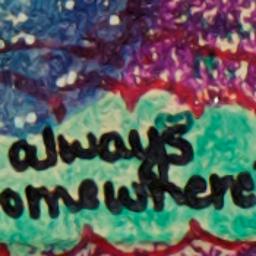 always
omewhere